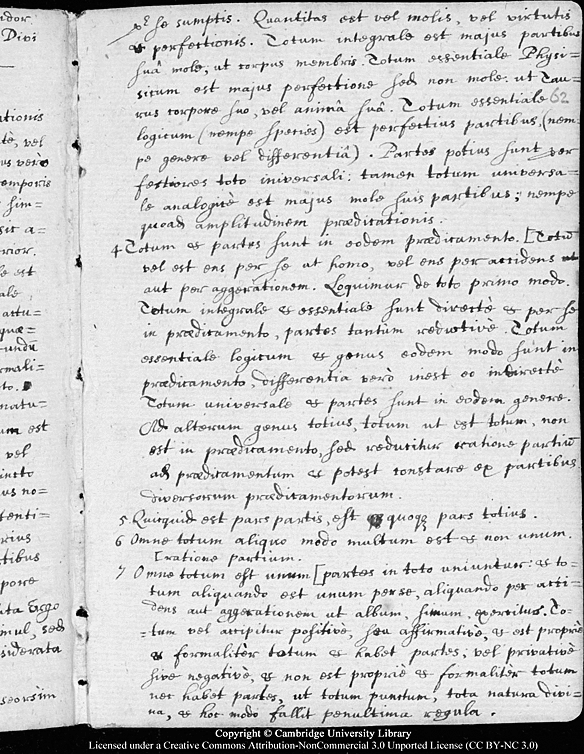 idor
Divi
ationis
te, vel
us vero
temporis
sim=
sit a=
rior.
le est
ale
actu=
quæ=
cundū
rmali=
to.
natu=
um est
vel
incto
us no=
tenti=
rius
tibus
pore
ita Ergo
imul, sed
siderata
seorsim
se sumptis. Quantitas est vel molis, vel virtutis
& perfectionis. Totum integrale est majus partibus
suâ mole, ut corpus membris. Totum essentiale Physi-
sicum est majus perfectione sed non mole. ut Tau-
rus corpore suo, vel animâ suâ. Totum essentiale 62
logicum (nempe species) est perfectius partibus, (nem
pe genere vel differentiâ). Partes potius sunt per
fectiores toto iniversali; tamen totum universa-
le analogicè est majus mole suis partibus; nempe
quoad amplitudinem prædicationis.
4 Totum & partes sunt in eodem prædicamento. [Totū
vel est ens per se ut homo, vel ens per accidens
aut per aggerationem. Loquimur de toto primo modo.
Totum integrale & essentiale sunt directè & per se
in prædicamento, partes tantùm reductive. Totum
essentiale logicum & genus eodem modo sunt in
prædicamento, differentia verò inest eo indirectè
Totum universale & partes sunt in eodem genere.
Ad alterum genus totius, totum ut est totum, non
est in prædicamento, sed reducitur ratione partiū
ad prædicamentum & potest constare ex partibus
diversorum prædicamentorum.
5 Quicquid est pars partis, est quoqꝫ pars totius.
6 Omne totum aliquo modo multum est & non unum.
[ratione partium.
7 Omne totum est unum [partes in toto uniuntur: & to-
tum aliquando est unum per se, aliquando per acci-
dens aut aggerationem ut album, simum, exercitus. To-
-tum vel accipitur positivè, seu affirmativè, & est propriè
& formalitèr totum & habet partes; vel privativè
sive negativè, & non est propriè & formalitèr totum
nec habet partes, ut totum punctum, tota natura divi-
na, & hoc modo fallit penultima regula.
Copyright © Cambridge University Library
Licensed under a Creative Commons Attribution-NonCommercial 3.0 Unported License (CC BY-NC 3.0)